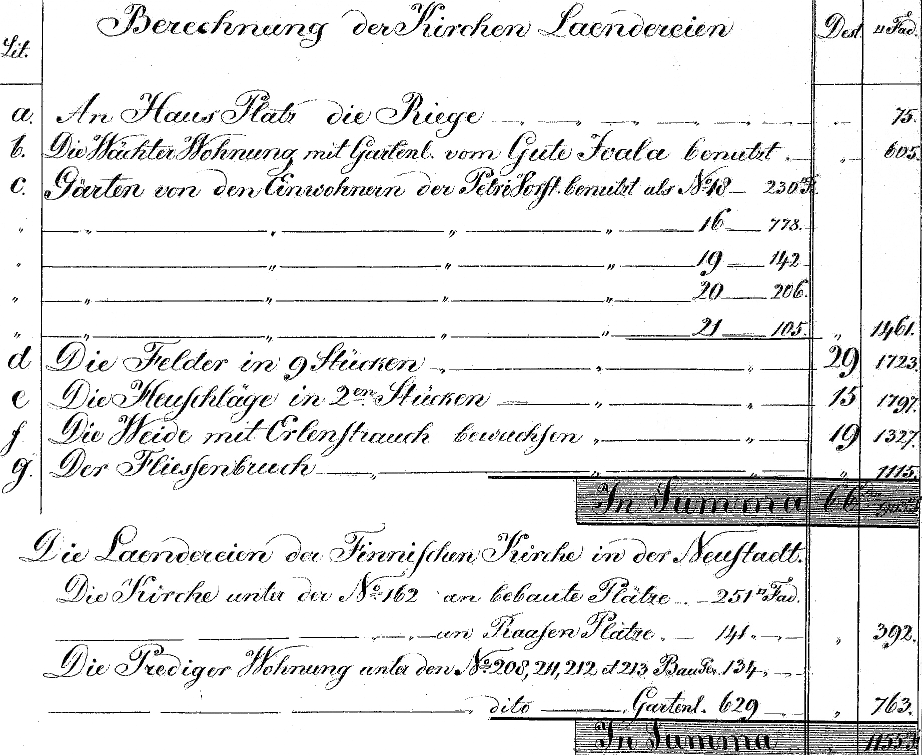 Lit. Berechnung der Kirchen Laendereien Dest. □Fad.
a. An Haus Platz die Riege „ 75.
b. Die Wächter Wohnung mit Gartenl. vom Gute Joala benutzt „ 605
c. Gärten von den Einwohnern der benutzt als No 18 — 230
„ „ „ „ „ 16 — 778.
„ „ „ „ „ 19 — 142
„ „ „ „ „ 20 — 206.
„ „ „ „ „ 21 — 105. „ 1461.
d Die Felder in 9 Stücken „ „ „ 29 1723.
e Die Heuschläge in 2en Stücken „ „ 15 1797.
f Die Weide mit Erlenstrauch bewachsen „ „ 19 1327.
g. Der Fliessenbruch „ „ „ „ 1115.
In Summa 66
Die Laendereien der Finnischen Kirche in der Neustadt.
Die Kirche unter der No 162 an bebaute Plätze 251 □Fad.
an Raasen Plätze. — 141. „ 392.
Die Prediger Wohnung unter den No 208, 211, 212 et 213 134.
„ dito Gartenl. 629 „ 763.
In Summa 1155.